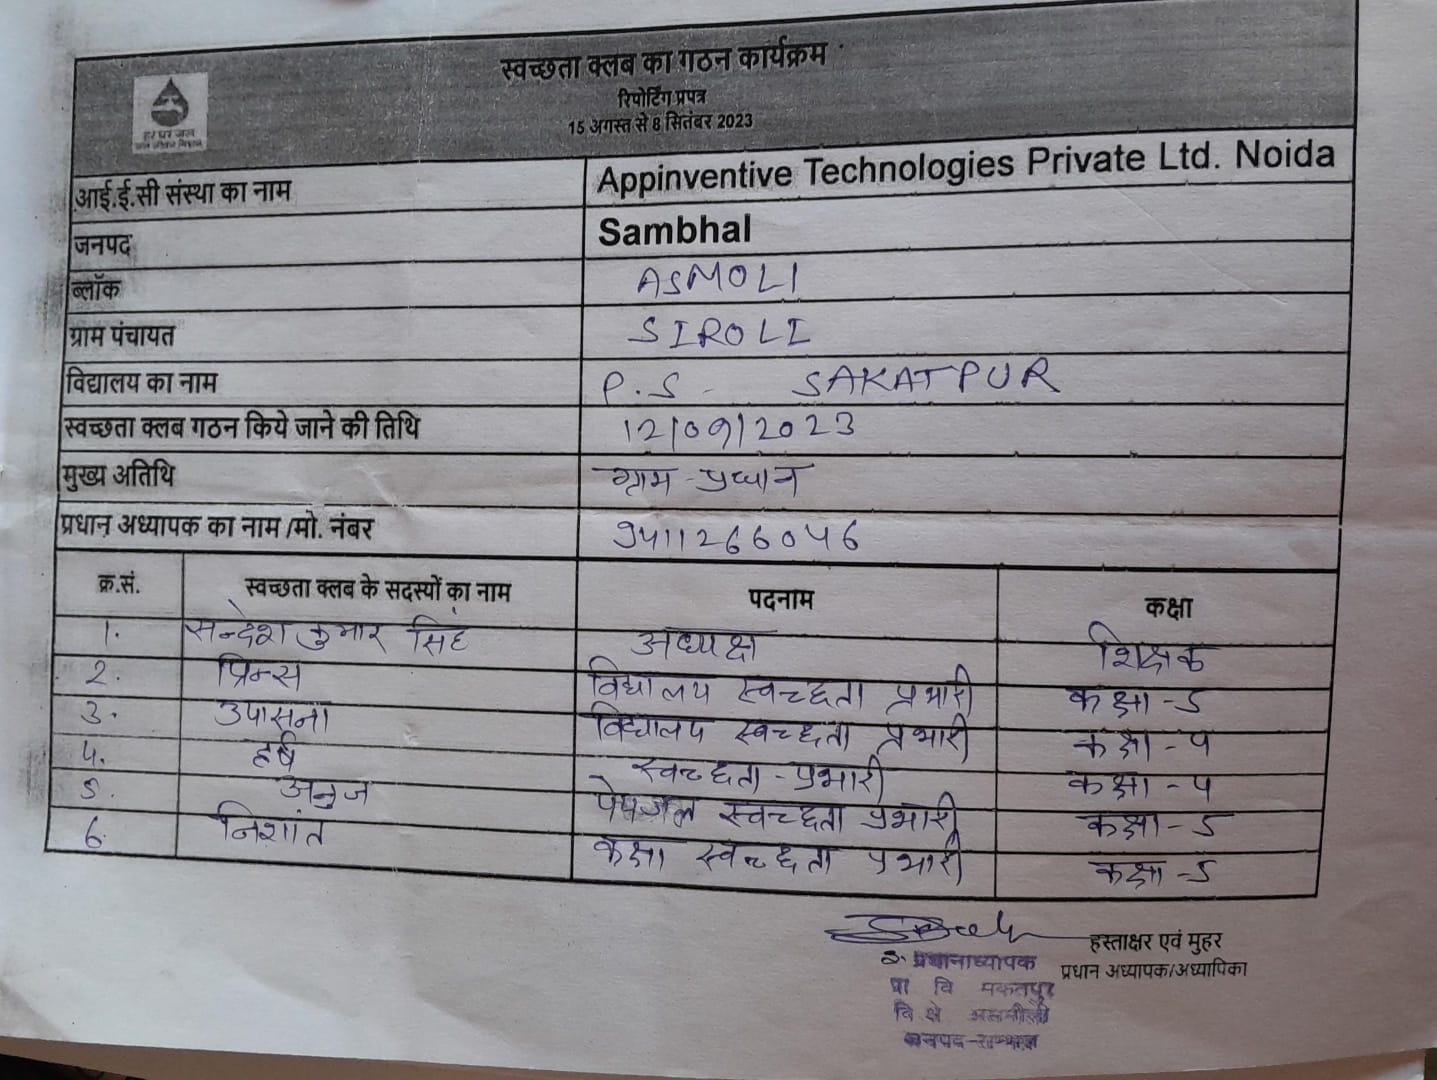 स्वच्छता क्लब का गठन कार्यक्रम
रिपोर्टिंग प्रपत्र
15 अगस्त से 8 सितंबर 2023
हर घर जल
जल जीवन मिशन
आई.ई.सी संस्था का नाम Appinventive Technologies Private Ltd. Noida
जनपद Sambhal
ब्लॉक ASMOLI
ग्राम पंचायत SIROLI
विद्यालय का नाम P.S - SAKATPUR
स्वच्छता क्लब गठन किये जाने की तिथि 12/09/2023
मुख्य अतिथि ग्राम-प्रधान
प्रधान अध्यापक का नाम /मो. नंबर 9411266046
क्र.सं. स्वच्छता क्लब के सदस्यों का नाम पदनाम कक्षा
1. सन्देश कुमार सिंह अध्यक्ष शिक्षक
2. प्रिन्स विद्यालय स्वच्छता प्रभारी कक्षा-5
3. उपासना विद्यालय स्वच्छता प्रभारी कक्षा-4
4. हर्ष स्वच्छता-प्रभारी कक्षा-4
5. अनुज पेयजल स्वच्छता प्रभारी कक्षा-5
6. निशांत कक्षा स्वच्छता प्रभारी कक्षा-5
हस्ताक्षर एवं मुहर
प्रधान अध्यापक/अध्यापिका
इ. प्रधानाध्यापक
प्रा वि सकतपुर
वि क्षे असमौली
जनपद-सम्भल